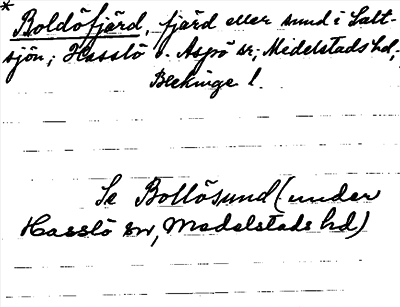 * Boldöfjärd, fjärd eller sund i Salt-
sjön; Hasslö o. Aspö sr; Medelstads hd,
Blekinge l.
Se Bollösund (under
Hasslö sn, Medelstads hd)